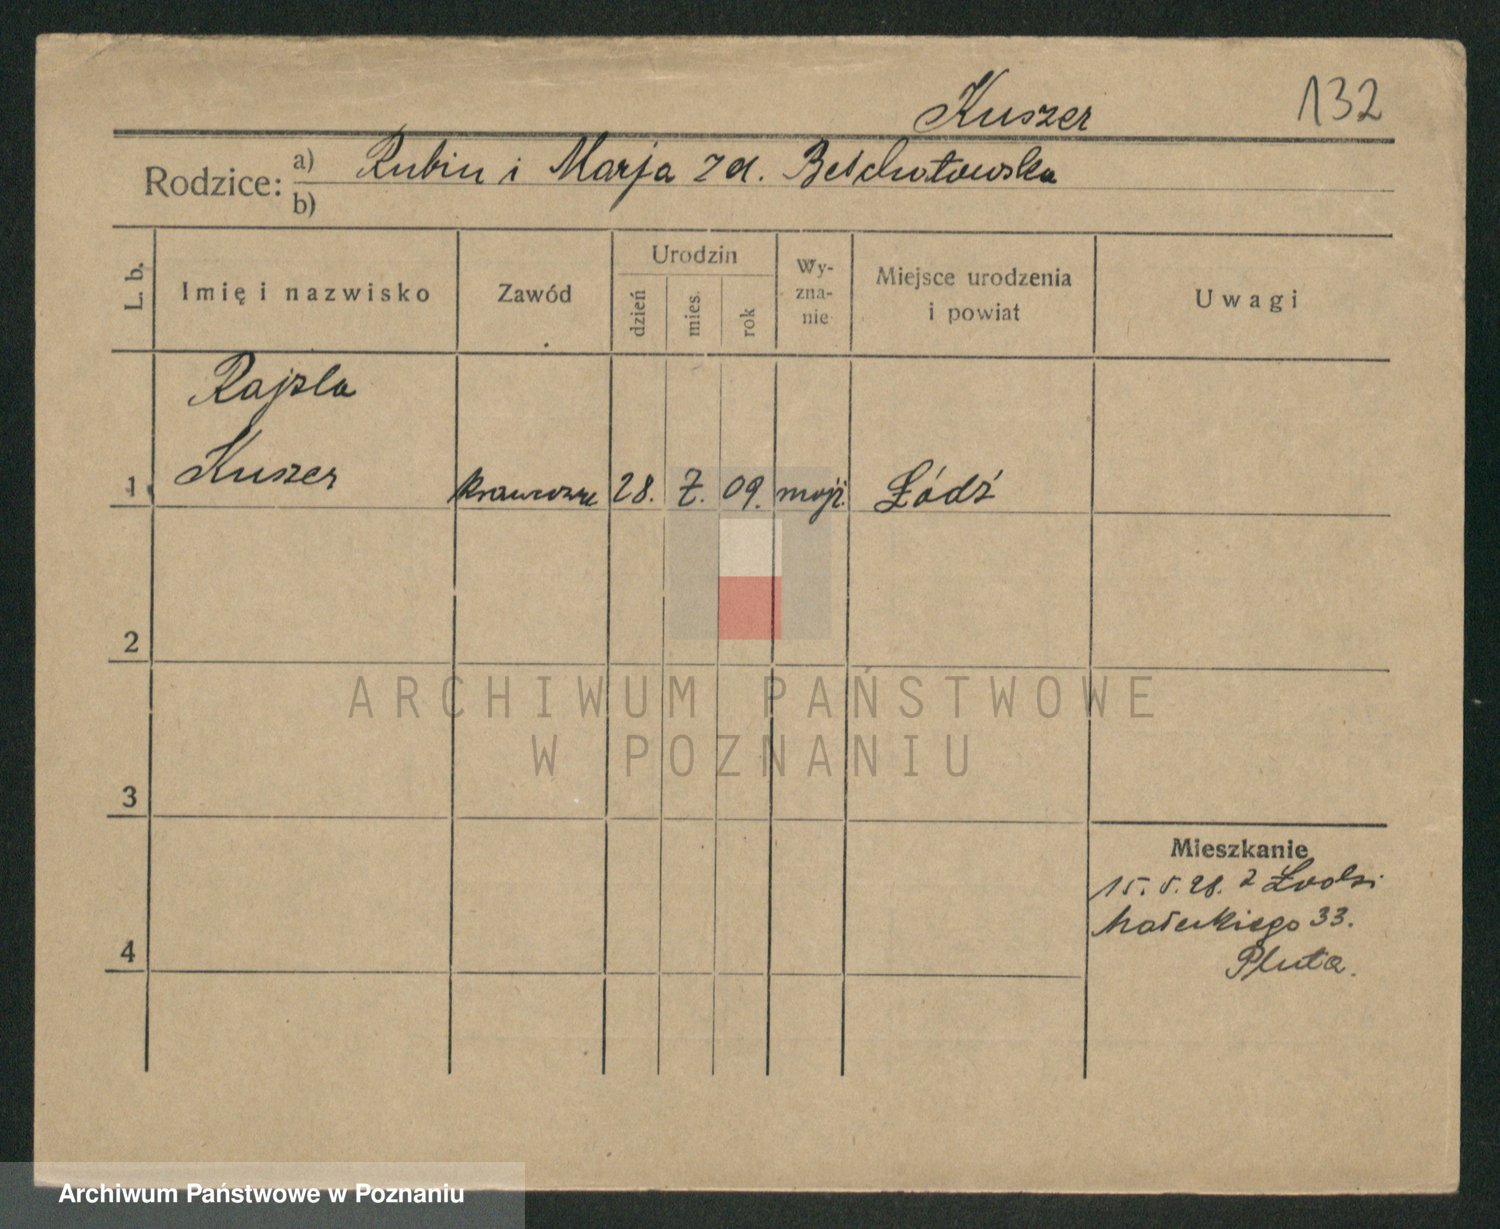 Kuszer 132
Rodzice: a) Rubin i Marja zd. Bełchatowska
b)
L. b. Imię i nazwisko Zawód Urodzin dzień mies. rok Wy-zna-nie Miejsce urodzenia i powiat Uwagi
Rajzla
1 Kuszer krawcowa 28. 7. 09. mojż. Łódź
2
3
Mieszkanie
15. 5. 28. z Łodzi
33.
4
Pluta.
ARCHIWUM PAŃSTWOWE
W POZNANIU
Archiwum Państwowe w Poznaniu